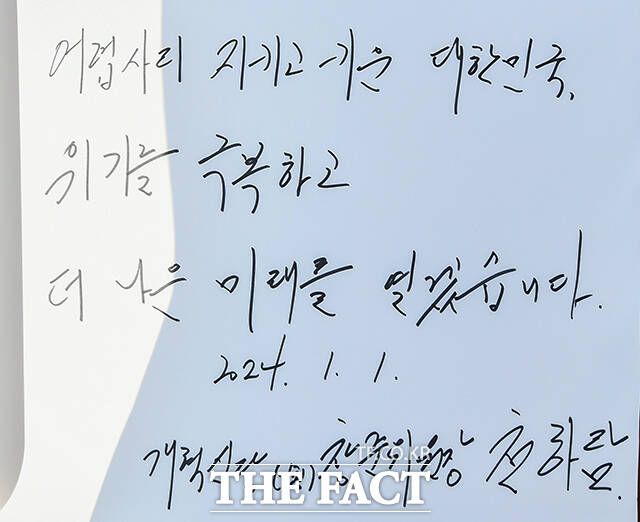 어렵사리 지키고 키운 대한민국,
위기를 극복하고
더 나은 미래를 열겠습니다.
2024. 1. 1.
개혁신당(가) 창준위원장 천하람
TF.CO.KR
THE FACT